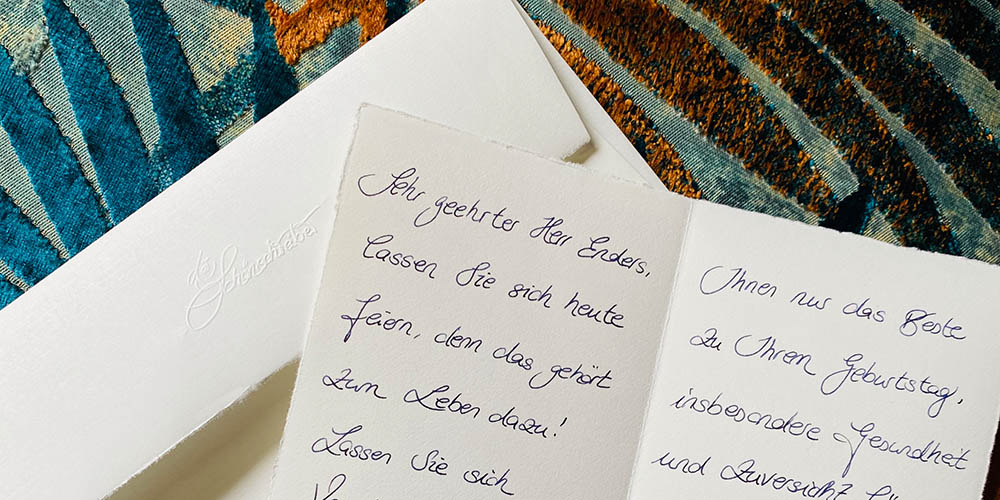 die
Schönschreiber
Sehr geehrter Herr Enders,
lassen Sie sich heute
feiern, denn das gehört
zum Leben dazu!
Lassen Sie sich
Ihnen nur das Beste
zu Ihrem Geburtstag,
insbesondere Gesundheit
und Zuversicht